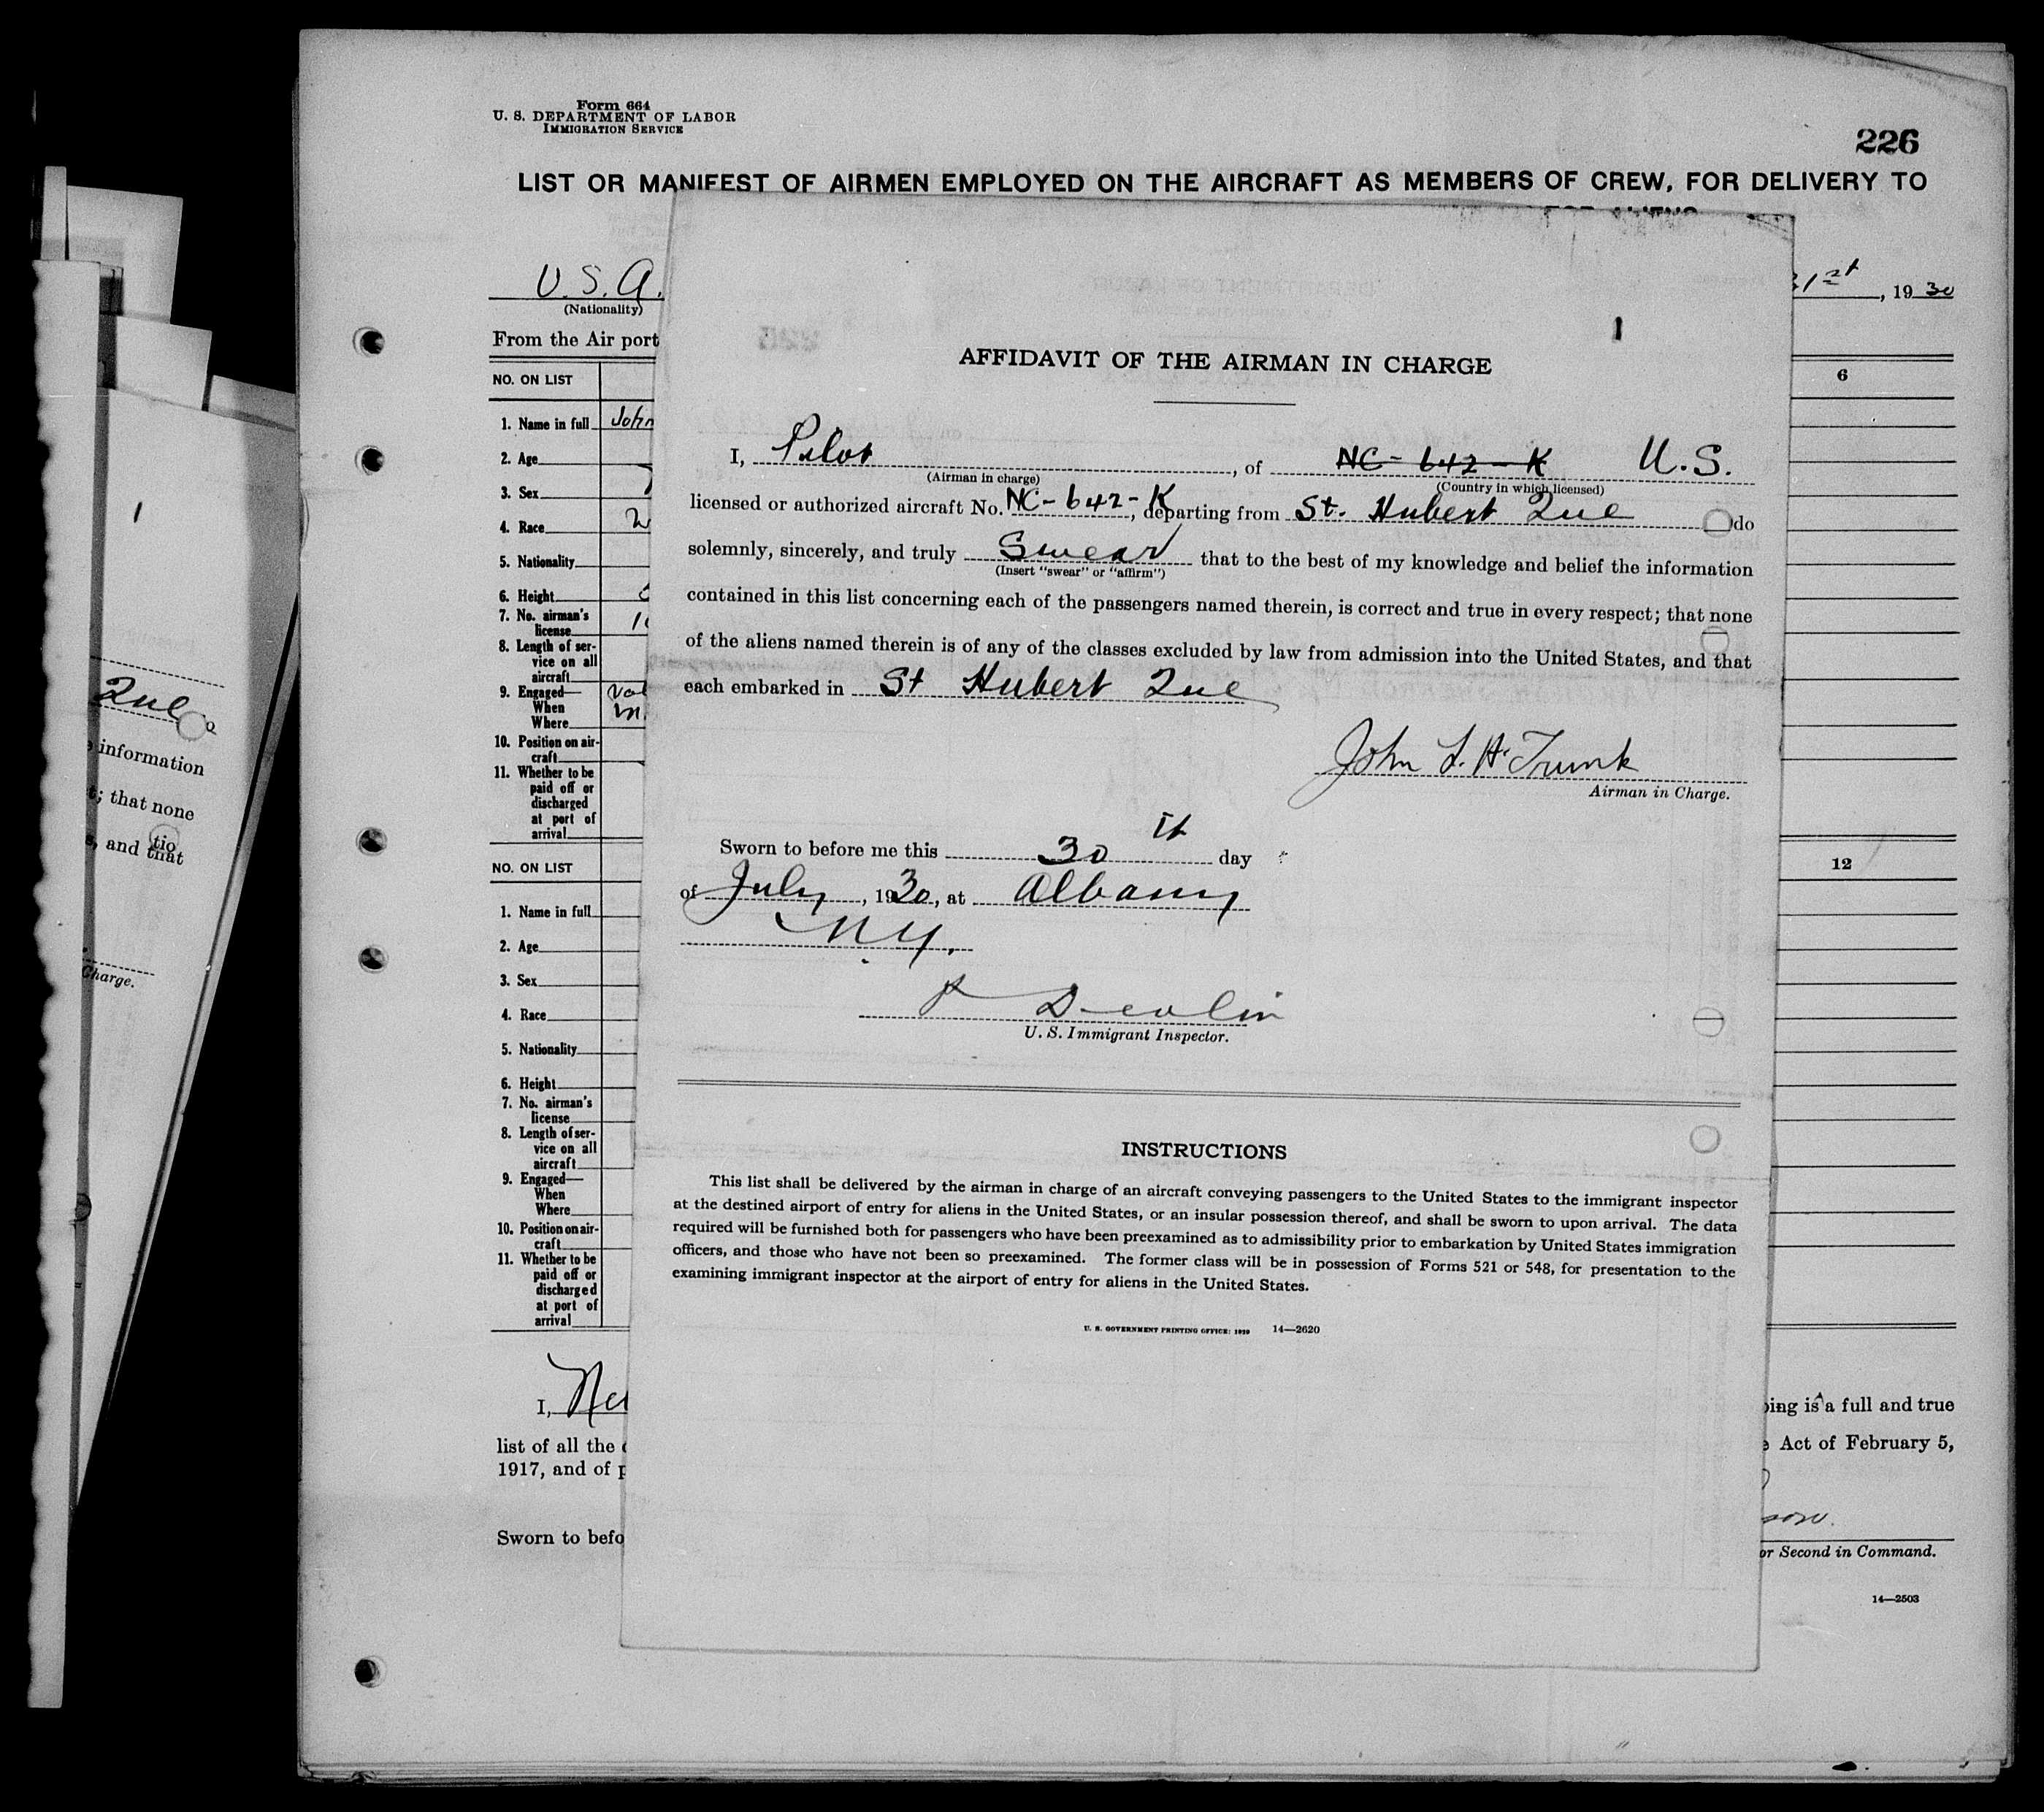 Form 664
U. S. DEPARTMENT OF LABOR
IMMIGRATION SERVICE
226
LIST OR MANIFEST OF AIRMEN EMPLOYED ON THE AIRCRAFT AS MEMBERS OF CREW, FOR DELIVERY TO
U. S. A.
(Nationality)
1st, 19 30
From the Air port
NO. ON LIST
6
1. Name in full John
2. Age
3. Sex
4. Race
5. Nationality
6. Height
7. No. airman's
license
8. Length of ser-
vice on all
aircraft
9. Engaged—
When
Where
10. Position on air-
craft
11. Whether to be
paid off or
discharged
at port of
arrival
NO. ON LIST
12
1. Name in full
2. Age
3. Sex
4. Race
5. Nationality
6. Height
7. No. airman's
license
8. Length of ser-
vice on all
aircraft
9. Engaged—
When
Where
10. Position on air-
craft
11. Whether to be
paid off or
discharged
at port of
arrival
I,
list of all the
1917, and of
Sworn to befo
is a full and true
Act of February 5,
or Second in Command.
14—2503
1
AFFIDAVIT OF THE AIRMAN IN CHARGE
I, Pilot, of NC-642-K U.S.
(Airman in charge)
(Country in which licensed)
licensed or authorized aircraft No. NC-642-K, departing from St. Hubert Que do
solemnly, sincerely, and truly Swear that to the best of my knowledge and belief the information
(Insert "swear" or "affirm")
contained in this list concerning each of the passengers named therein, is correct and true in every respect; that none
of the aliens named therein is of any of the classes excluded by law from admission into the United States, and that
each embarked in St Hubert Que
John L. H. Trunk
Airman in Charge.
Sworn to before me this 30 day
of July, 1930, at Albany
N Y.
Devlin
U. S. Immigrant Inspector.
INSTRUCTIONS
This list shall be delivered by the airman in charge of an aircraft conveying passengers to the United States to the immigrant inspector
at the destined airport of entry for aliens in the United States, or an insular possession thereof, and shall be sworn to upon arrival. The data
required will be furnished both for passengers who have been preexamined as to admissibility prior to embarkation by United States immigration
officers, and those who have not been so preexamined. The former class will be in possession of Forms 521 or 548, for presentation to the
examining immigrant inspector at the airport of entry for aliens in the United States.
U. S. GOVERNMENT PRINTING OFFICE: 1929 14—2620
1
Que
information
; that none
, and that
Charge.